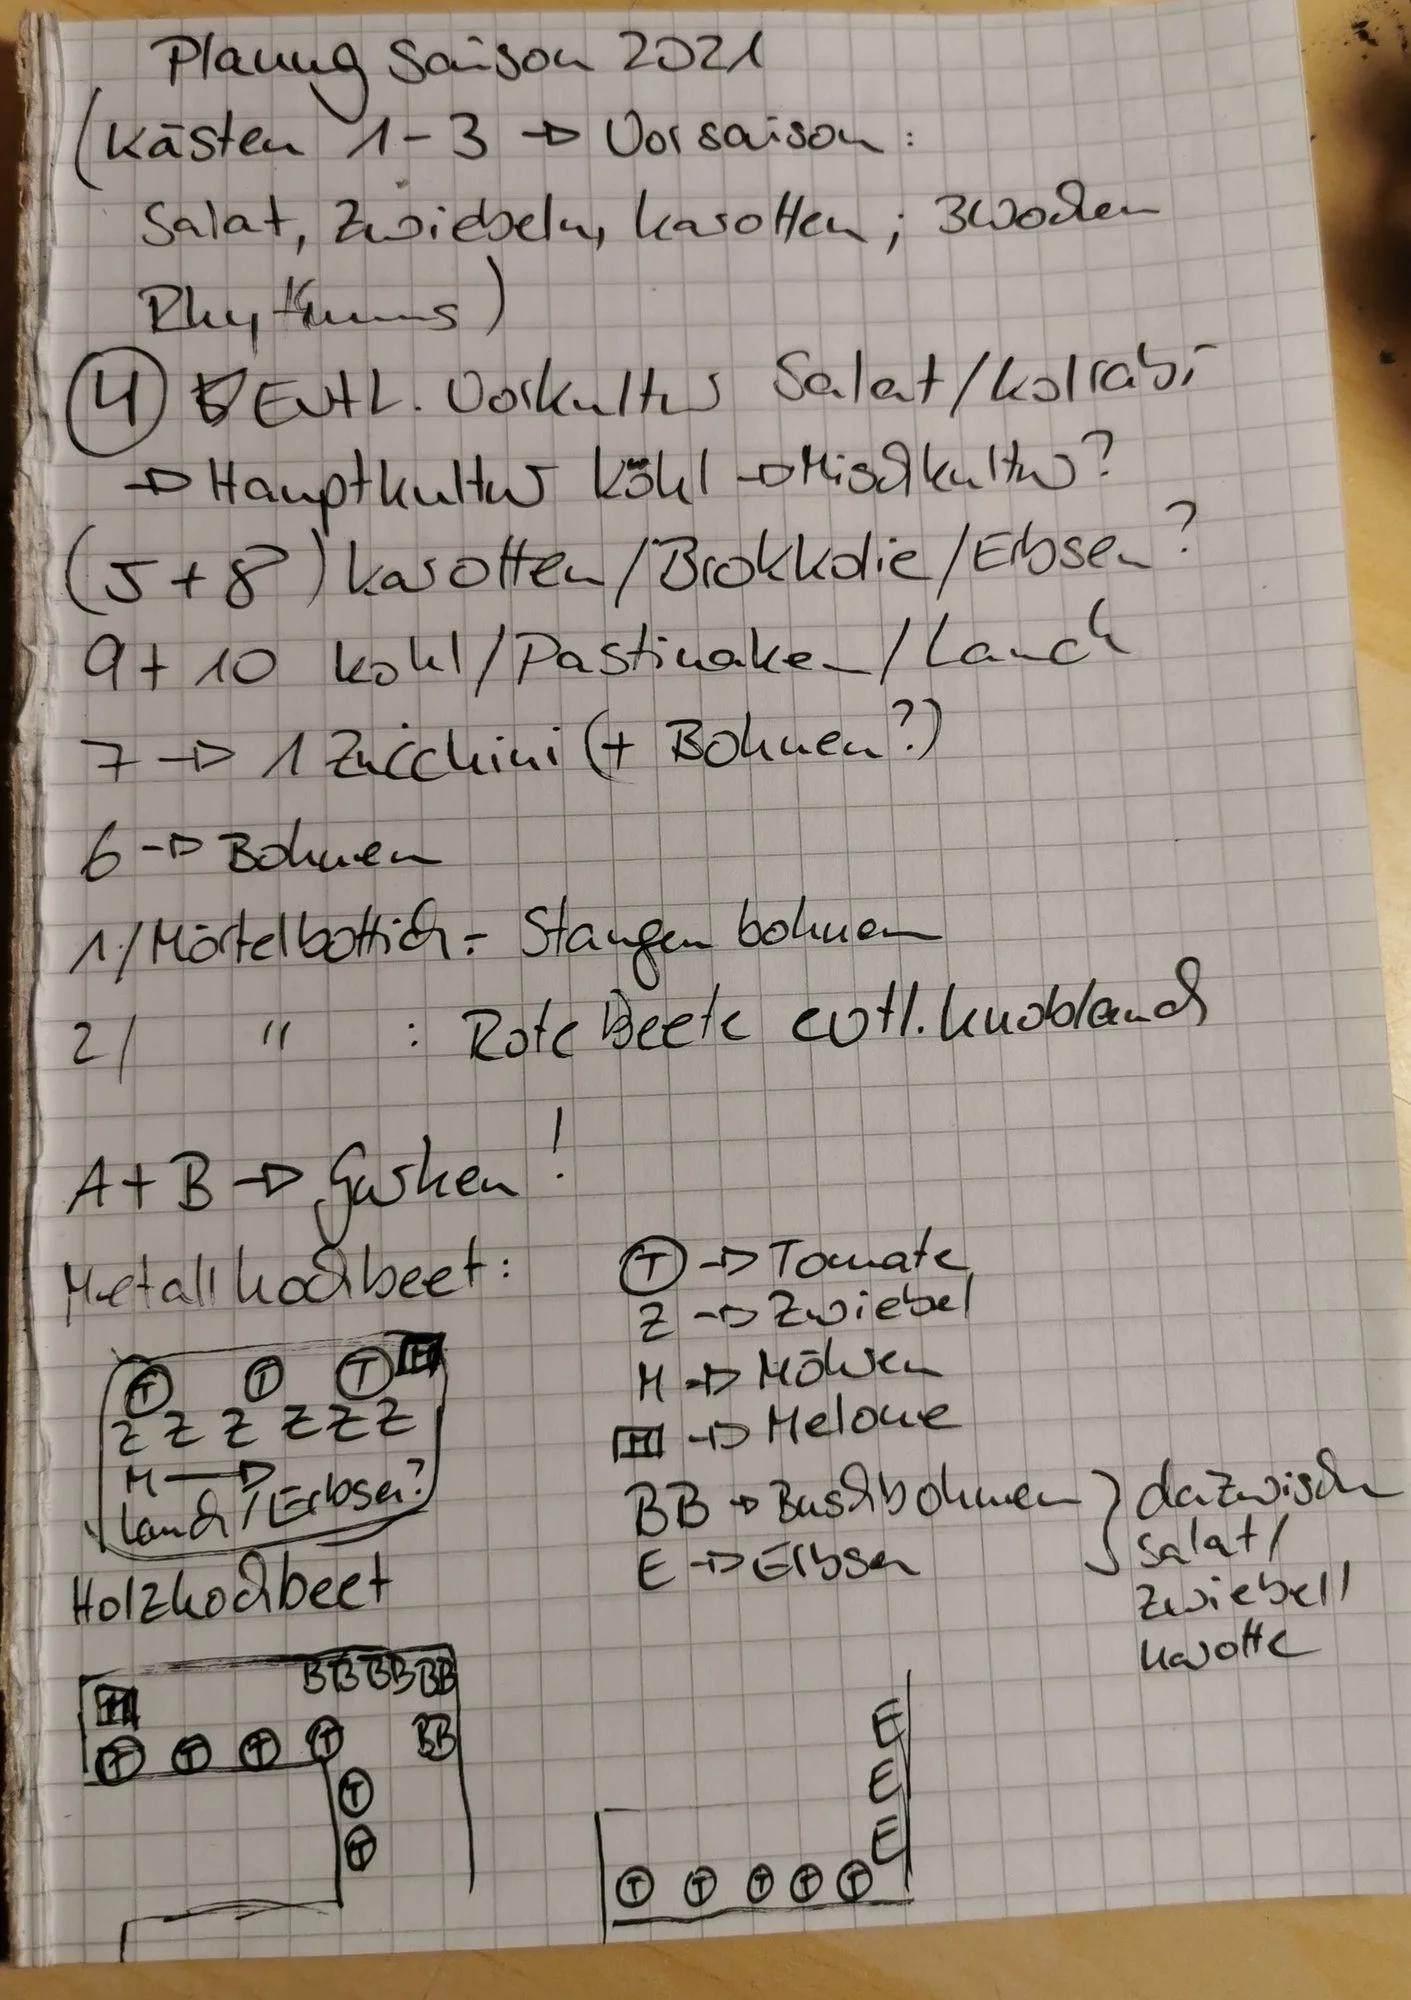 Planung Saison 2021
(Kästen 1-3 → Vorsaison:
Salat, Zwiebeln, Karotten; 3 Wochen
Rhythmus)
④ Evtl. Vorkultur Salat/Kolrabi
→ Hauptkultur Kohl → Mischkultur?
(5+8) Karotten/Brokkolie/Erbsen?
9+10 Kohl/Pastinaken/Lauch
7 → 1 Zucchini (+ Bohnen?)
6 → Bohnen
1/Mörtelbottich - Stangenbohnen
2/ " : Rote Beete evtl. Knoblauch
A+B → Gurken!
Metallhochbeet:
T T T M
Z Z Z Z Z Z
M →
Lauch/Erbsen?
T → Tomate
Z → Zwiebel
M → Möhren
M → Melone
BB → Buschbohnen } dazwischen
E → Erbsen
Salat/
Zwiebel/
Karotte
Holzhochbeet
BB BB BB
M
T T T T BB
T
T
E
E
E
T T T T T